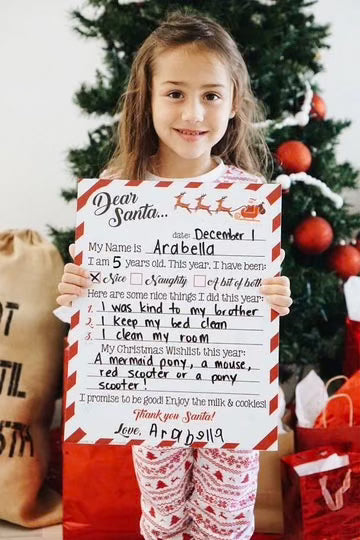 Dear
Santa...
date: December 1
My Name is Arabella
I am 5 years old. This year, I have been:
X Nice Naughty A bit of both
Here are some nice things I did this year:
1. I was kind to my brother
2. I keep my bed clean
3. I clean my room
My Christmas Wishlist this year:
A mermaid pony, a mouse,
red scooter or a pony
scooter!
I promise to be good! Enjoy the milk & cookies!
Thank you Santa!
Love, Arabella